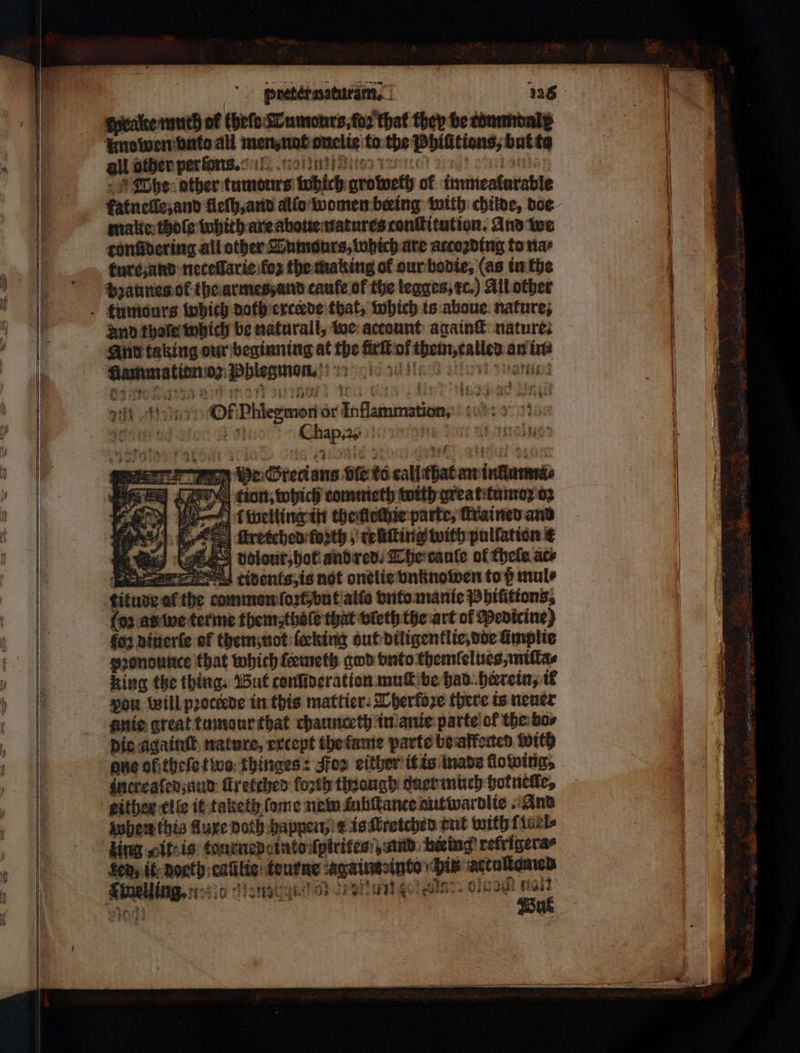 preter naturam. 126
speake much of these Tumours, for that they be commonly
knowen vnto all men, not onelie to the Phisitions, but to
all other persons.
The other tumours which groweth of immeasurable
fatnesse, and flesh, and also women beeing with childe, doe
make those which are aboue natures constitution. And we
considering all other Tumours, which are according to na-
ture, and necessarie for the making of our bodie, (as in the
braunes of the armes, and caufe of the legges, &c.) All other
tumours which doth exceede that, which is aboue nature,
and those which be naturall, we account against nature.
And taking our beginning at the first of them, called an in-
flammation or Phlegmon.
Of Phlegmon or Inflammation,
Chap. 2.
The Grecians vse to call that an inflamma-
tion, which commeth with great tumor or
swelling in the fleshie parte, strained and
stretched forth, resisting with pulsation &
dolour, hot and red. The cause of these ac-
cidents, is not onelie vnknowen to þͤ mul-
titude of the common sort, but also vnto manie Phisitions,
(or as we terme them, those that vseth the art of Medicine)
for diuerse of them, not seeking out diligentlie, doe simplie
pronounce that which seemeth good vnto themselues, mista-
king the thing. But consideration must be had heerein, if
you will proceede in this mattier. Therfore there is neuer
anie great tumour that chaunceth in anie parte of the bo-
die against nature, except the same parte be affected with
one of these two thinges: For either it is made flowing,
increased, and stretched forth through ouer much hotnesse,
either else it taketh some new substance outwardlie. And
when this fluxe doth happen, & is stretched out with swel-
ling it is tourned into spirites, and beeing refrigera-
ted, it doeth easilie tourne againe into his accustomed
swelling.
But